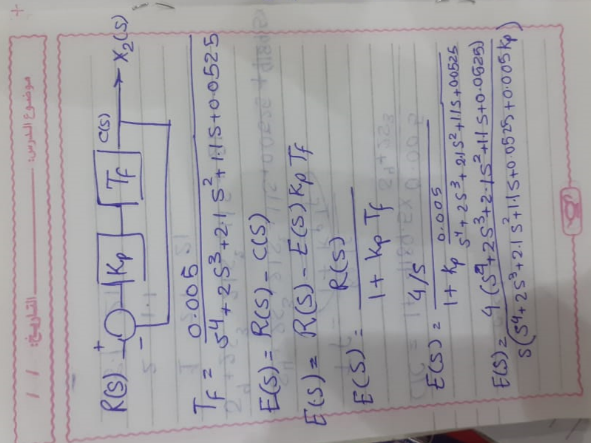 موضوع الدرس: التاريخ: / /
R(S) + - Kp Tf C(S) X₂(S)
Tf = 0.005 / S⁴+2S³+2.1S²+1.1S+0.0525
E(S) = R(S) - C(S)
E(S) = R(S) - E(S) Kp Tf
E(S) = R(S) / 1 + Kp Tf
E(S) = 4/S / 1 + Kp 0.005 / S⁴+2S³+2.1S²+1.1S+0.0525
E(S) = 4(S⁴+2S³+2.1S²+1.1S+0.0525) / S(S⁴+2S³+2.1S²+1.1S+0.0525+0.005Kp)